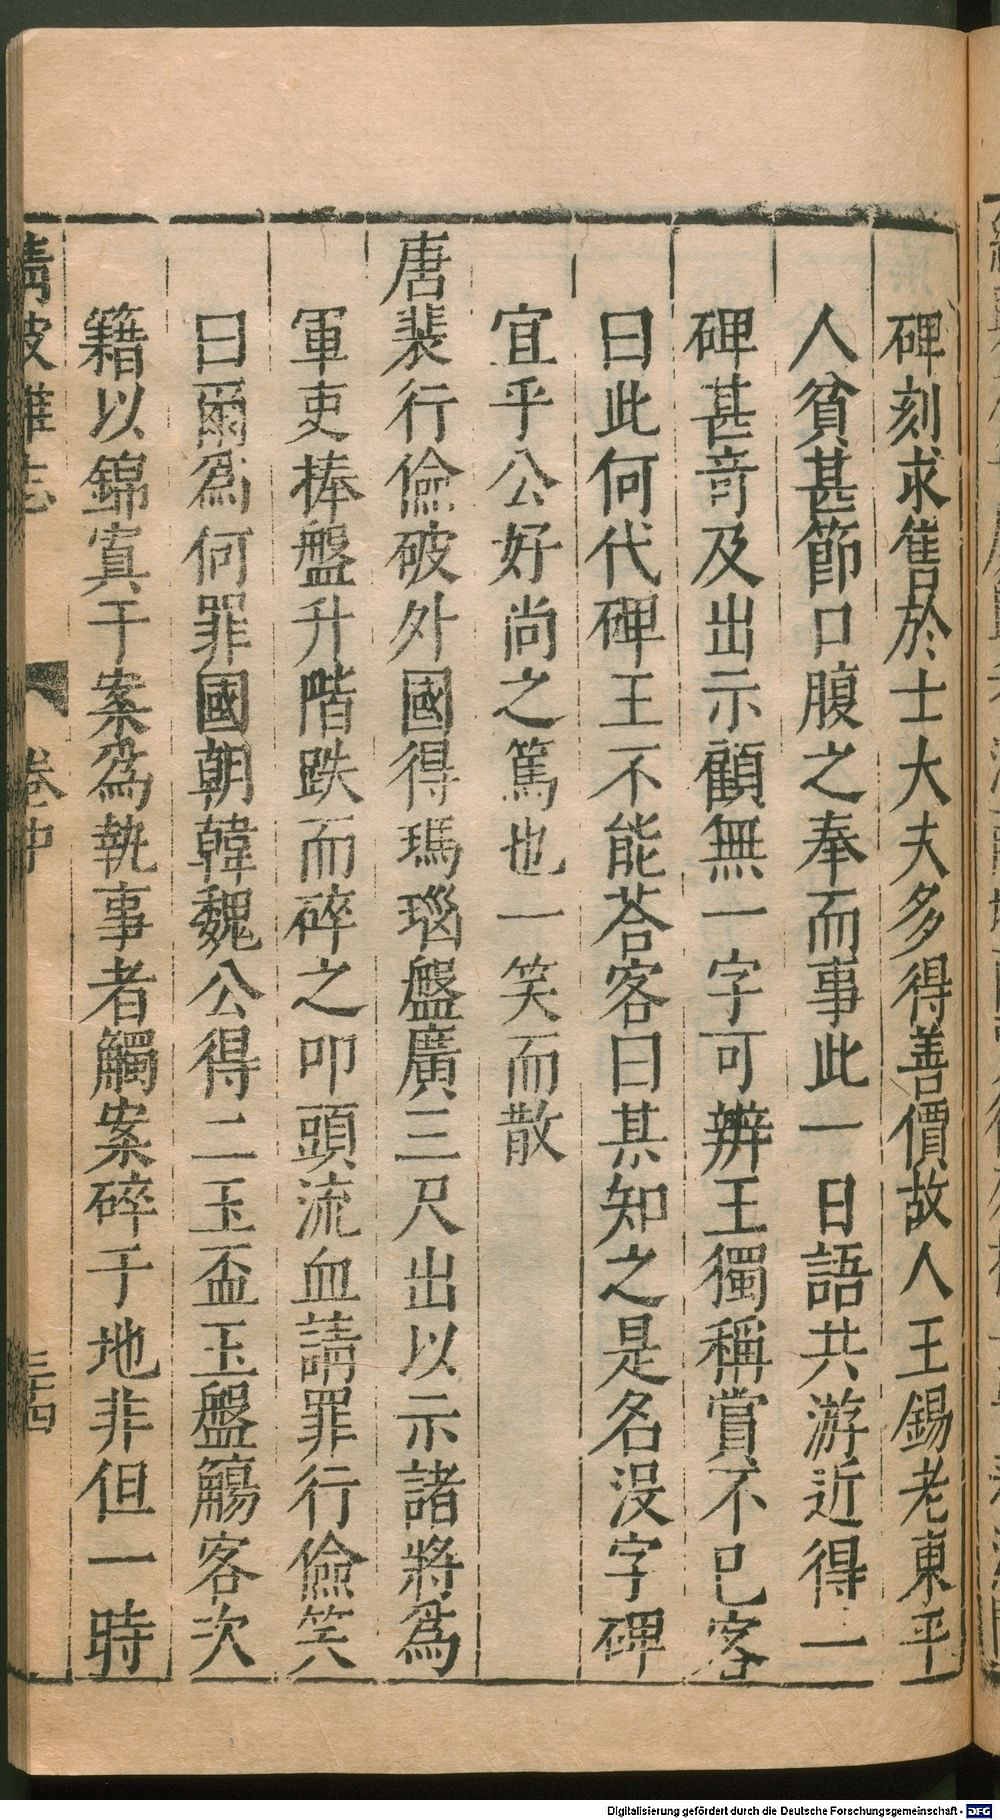 碑刻求售於士大夫多得善價故人王錫老東平
人貧甚節口腹之奉而事此一日語共游近得一
碑甚竒及出示顧無一字可辨王獨稱賞不已客
曰此何代碑王不能荅客曰某知之是名沒字碑
宜乎公好尚之篤也一笑而散
唐裴行儉破外國得瑪瑙盤廣三尺出以示諸將爲
軍吏捧盤升階跌而碎之叩頭流血請罪行儉笑
曰爾爲何罪國朝韓魏公得二玉盃玉盤觴客次
籍以錦寘于案爲執事者觸案碎于地非但一時
清波雜志
卷中
三十四
Digitalisierung gefördert durch die Deutsche Forschungsgemeinschaft - DFG